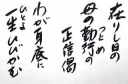 在りし日の
母の勤行の
つとめ
正信偈
わが耳底に
ひとよ
一生ひびかむ